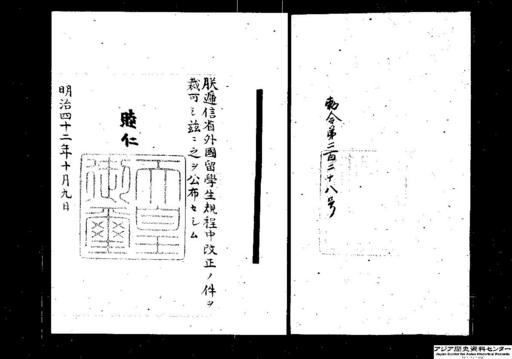 勅令第二百二十八号
朕遞信省外國留學生規程中改正ノ件ヲ
裁可シ茲ニ之ヲ公布セシム
睦仁
天皇御璽
明治四十二年十月九日
アジア歴史資料センター
Japan Center for Asian Historical Records